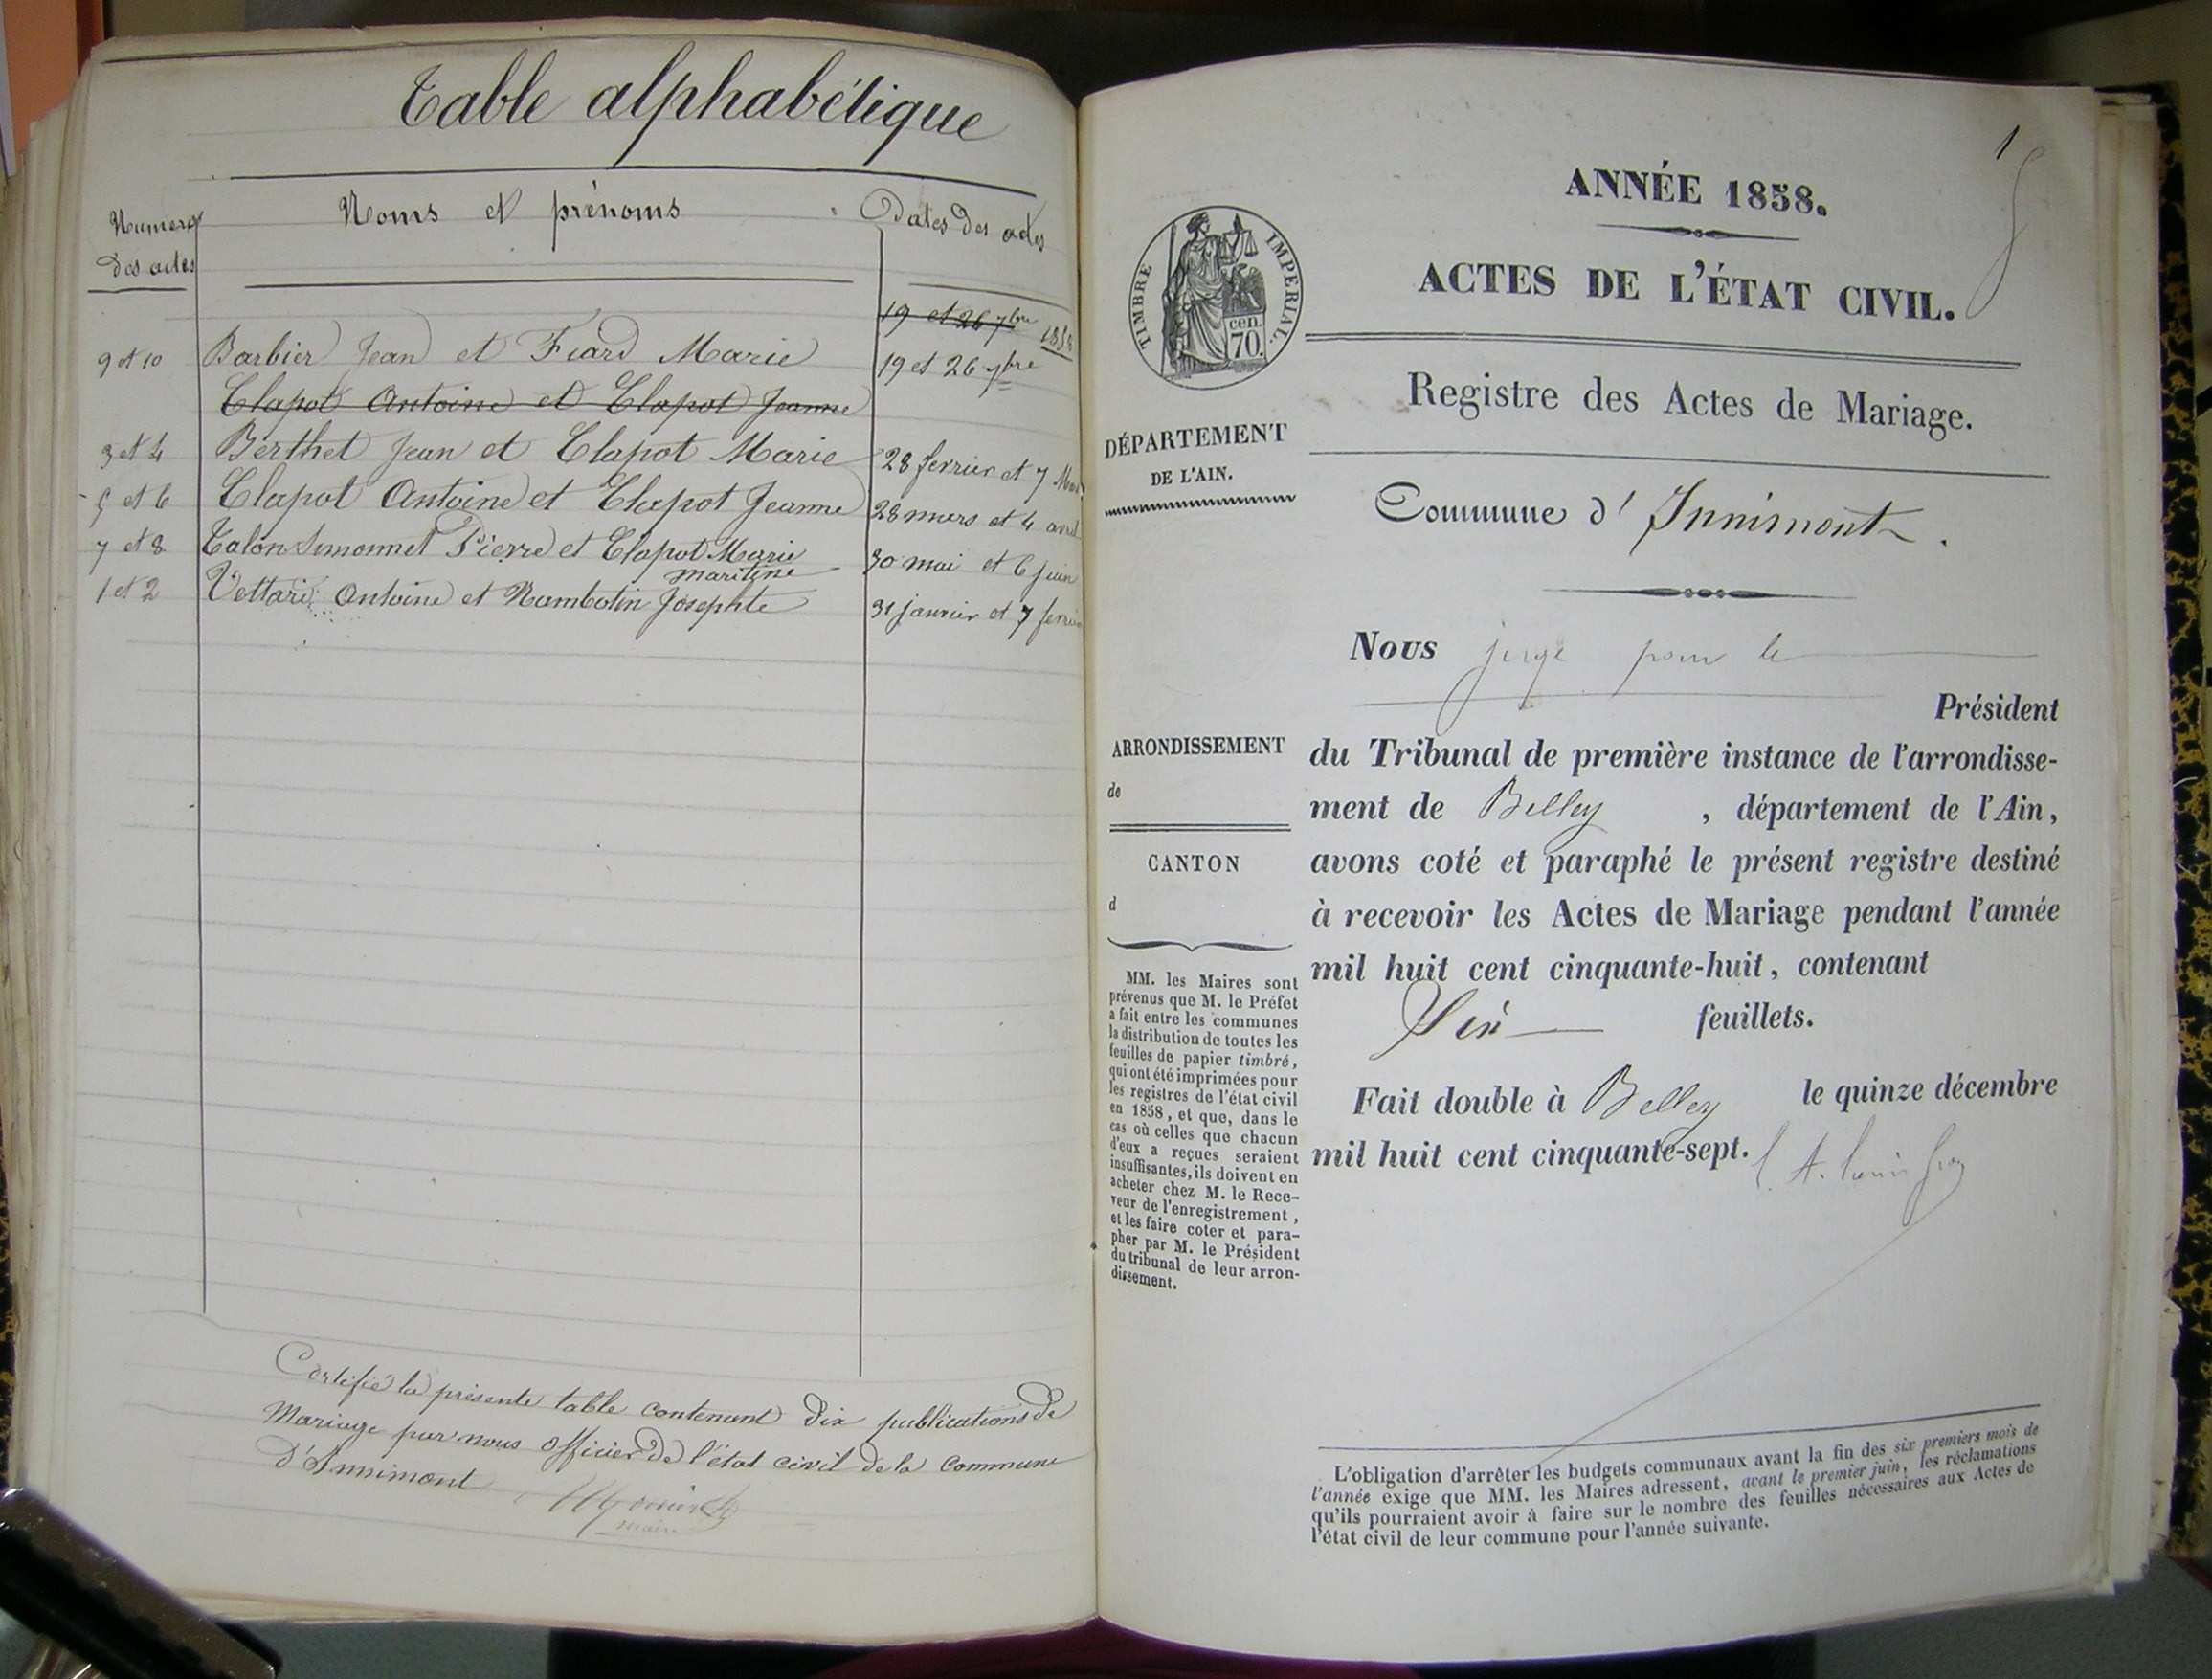 Table alphabétique
Numeros des actes
Noms et prénoms
Dates des actes
19 et 26 7bre 1858
9 et 10 Barbier Jean et Fiard Marie 19 et 26 7bre
Clapot Antoine et Clapot Jeanne
3 et 4 Berthet Jean et Clapot Marie 28 fevrier et 7 Mars
5 et 6 Clapot Antoine et Clapot Jeanne 28 mars et 4 avril
7 et 8 Talon Simonnet Pierre et Clapot Marie 30 mai et 6 juin
maritine
1 et 2 Vettard Antoine et Nambotin Josephte 31 janvier et 7 fevrier
Certifié la présente table contenant dix publications de
Mariage par nous officier de l'état civil de la commune
d'Innimont
maire
1
ANNÉE 1858.
ACTES DE L'ÉTAT CIVIL.
TIMBRE IMPERIAL.
cen. 70.
Registre des Actes de Mariage.
DÉPARTEMENT
DE L'AIN.
Commune d'Innimont.
Nous juge pour le
Président
ARRONDISSEMENT
de
CANTON
d
du Tribunal de première instance de l'arrondisse-
ment de Belley, département de l'Ain,
avons coté et paraphé le présent registre destiné
à recevoir les Actes de Mariage pendant l'année
mil huit cent cinquante-huit, contenant
Six feuillets.
Fait double à Belley le quinze décembre
mil huit cent cinquante-sept.
MM. les Maires sont
prévenus que M. le Préfet
a fait entre les communes
la distribution de toutes les
feuilles de papier timbré,
qui ont été imprimées pour
les registres de l'état civil
en 1858, et que, dans le
cas où celles que chacun
d'eux a reçues seraient
insuffisantes, ils doivent en
acheter chez M. le Rece-
veur de l'enregistrement,
et les faire coter et para-
pher par M. le Président
du tribunal de leur arron-
dissement.
L'obligation d'arrêter les budgets communaux avant la fin des six premiers mois de
l'année exige que MM. les Maires adressent, avant le premier juin, les réclamations
qu'ils pourraient avoir à faire sur le nombre des feuilles nécessaires aux Actes de
l'état civil de leur commune pour l'année suivante.